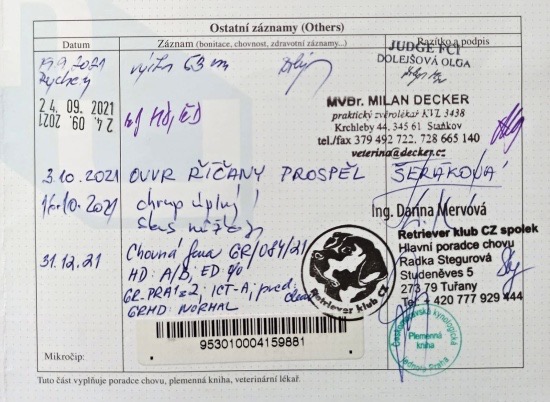 Ostatní záznamy (Others)
Datum
Záznam (bonitace, chovnost, zdravotní záznamy...)
Razítko a podpis
19.9.2021
výška 63 cm
JUDGE FCI
DOLEJŠOVÁ OLGA
24. 09. 2021
24. 09. 2021
HD, ED
MVDr. MILAN DECKER
praktický zvěrolékař KVL 3438
Krchleby 44, 345 61 Staňkov
tel./fax 379 492 722, 728 665 140
veterina@decker.cz
3.10.2021 OVVR ŘÍČANY PROSPĚL ŠERÁKOVÁ
16.10.2021 chrup úplný!
skus nůžkový
Ing. Darina Mervová
31.12.21 Chovná fena GR/084/21
HD: A/B, ED 0/0
GR-PRA1 ICT-A, pred.
GRMD: NORMAL
Retriever klub CZ
Retriever klub CZ spolek
Hlavní poradce chovu
Radka Stegurová
Studeněves 5
273 79 Tuřany
Tel.: + 420 777 929 444
953010004159881
Mikročip:
Českomoravská kynologická
Plemenná
kniha
jednota Praha
Tuto část vyplňuje poradce chovu, plemenná kniha, veterinární lékař.